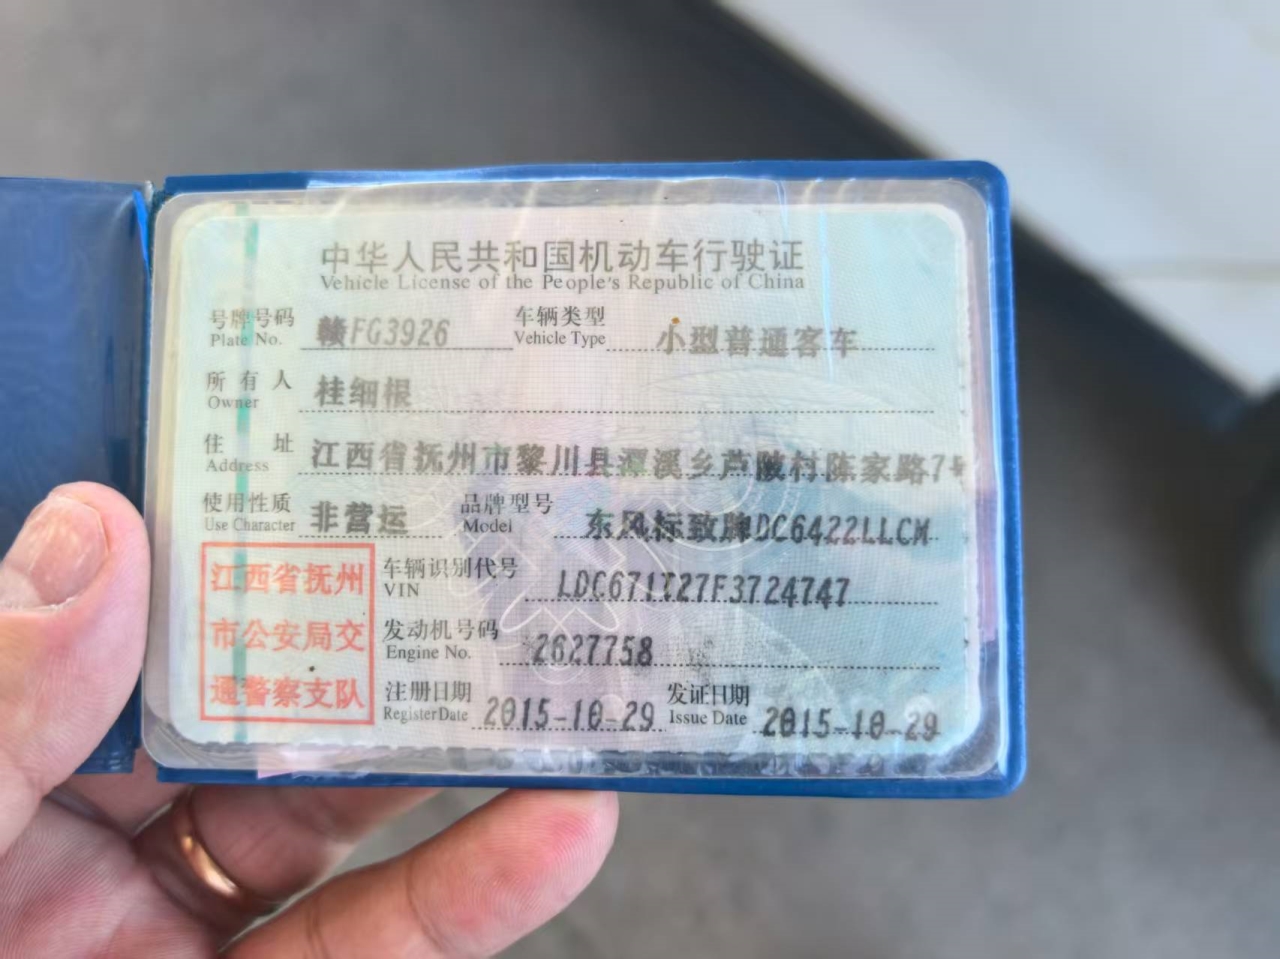 中华人民共和国机动车行驶证
Vehicle License of the People's Republic of China
号牌号码 赣FG3926 车辆类型 小型普通客车
Plate No. Vehicle Type
所有人 桂细根
Owner
住址 江西省抚州市黎川县潭溪乡芦陂村陈家路7号
Address
使用性质 非营运 品牌型号 东风标致牌DC6422LLCM
Use Character Model
江西省抚州
市公安局交
通警察支队
车辆识别代号 LDC671T27F3724747
VIN
发动机号码 2627758
Engine No.
注册日期 2015-10-29 发证日期 2015-10-29
Register Date Issue Date